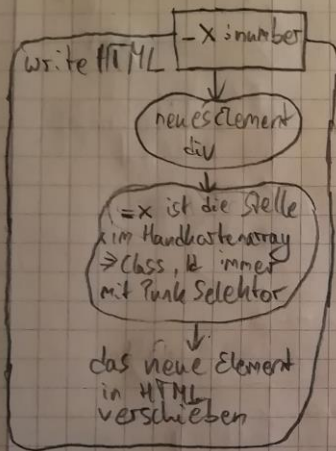 -x :number
write HTML
neues Element
div
=x ist die Stelle
im Handkartenarray
→ Class, Id immer
mit Punk Selektor
das neue Element
in HTML
verschieben